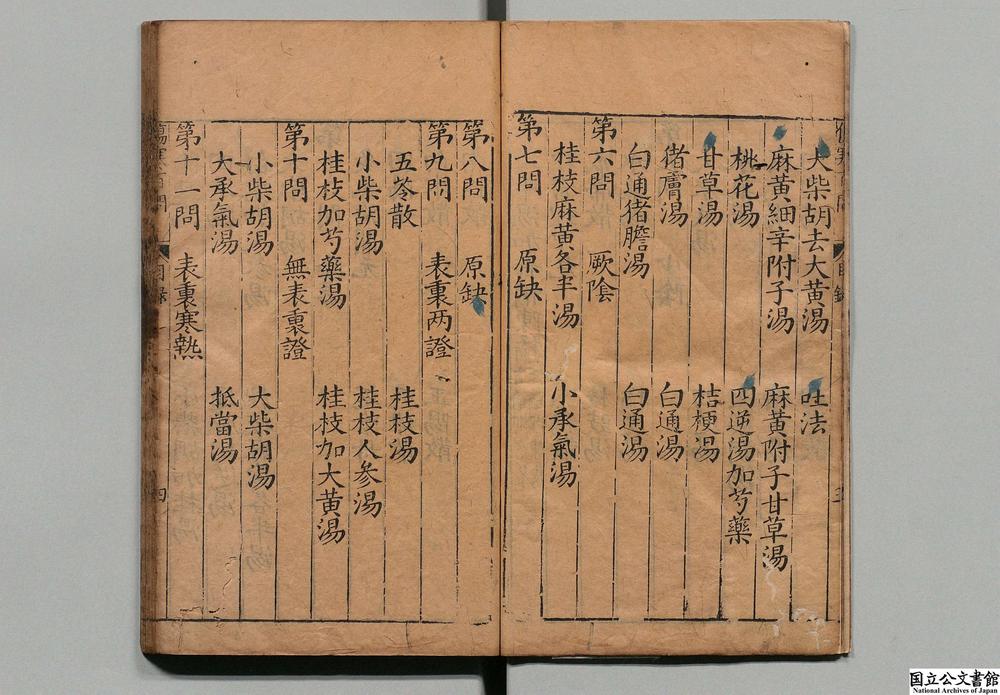 目錄 三
大柴胡去大黃湯 吐法
麻黃細辛附子湯 麻黃附子甘草湯
桃花湯 四逆湯加芍藥
甘草湯 桔梗湯
猪膚湯 白通湯
白通猪膽湯 白通湯
第六問 厥陰
桂枝麻黃各半湯 小承氣湯
第七問 原缺
第八問 原缺
第九問 表裏两證
五苓散 桂枝湯
小柴胡湯 桂枝人参湯
桂枝加芍藥湯 桂枝加大黃湯
第十問 無表裏證
小柴胡湯 大柴胡湯
大承氣湯 抵當湯
第十一問 表裏寒熱
傷寒百問 目錄 四
国立公文書館
National Archives of Japan